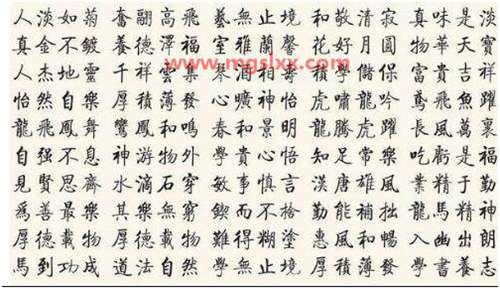 人淡如菊 奮翮高飛 藝無止境 和敬清寂 真味是淡
真金不鍍 養德澤福 室雅蘭馨 花好月圓 物華天寶
www.mgslxx.com
人杰地靈 千祥雲集 琴 酒 壽 積學儲 富貴吉祥
怡然自樂 厚積薄發 心曠神怡 虎嘯龍吟 鳶飛魚躍
龍飛鳳舞 鸞鳳和鳴 春和景明 龍騰虎躍 長風萬裏
自强不息 神游物外 學貴心悟 知足常樂 吃虧是福
見賢思齊 水滴石穿 敏事慎言 漢唐雄風 業精于勤
爲善最樂 其樂無窮 鍥而不捨 勤能補拙 龍馬精神
厚德載物 厚德載物 難得糊塗 惠風和暢 入幽出朗
馬到功成 道法自然 學無止境 厚積薄發 學書養志